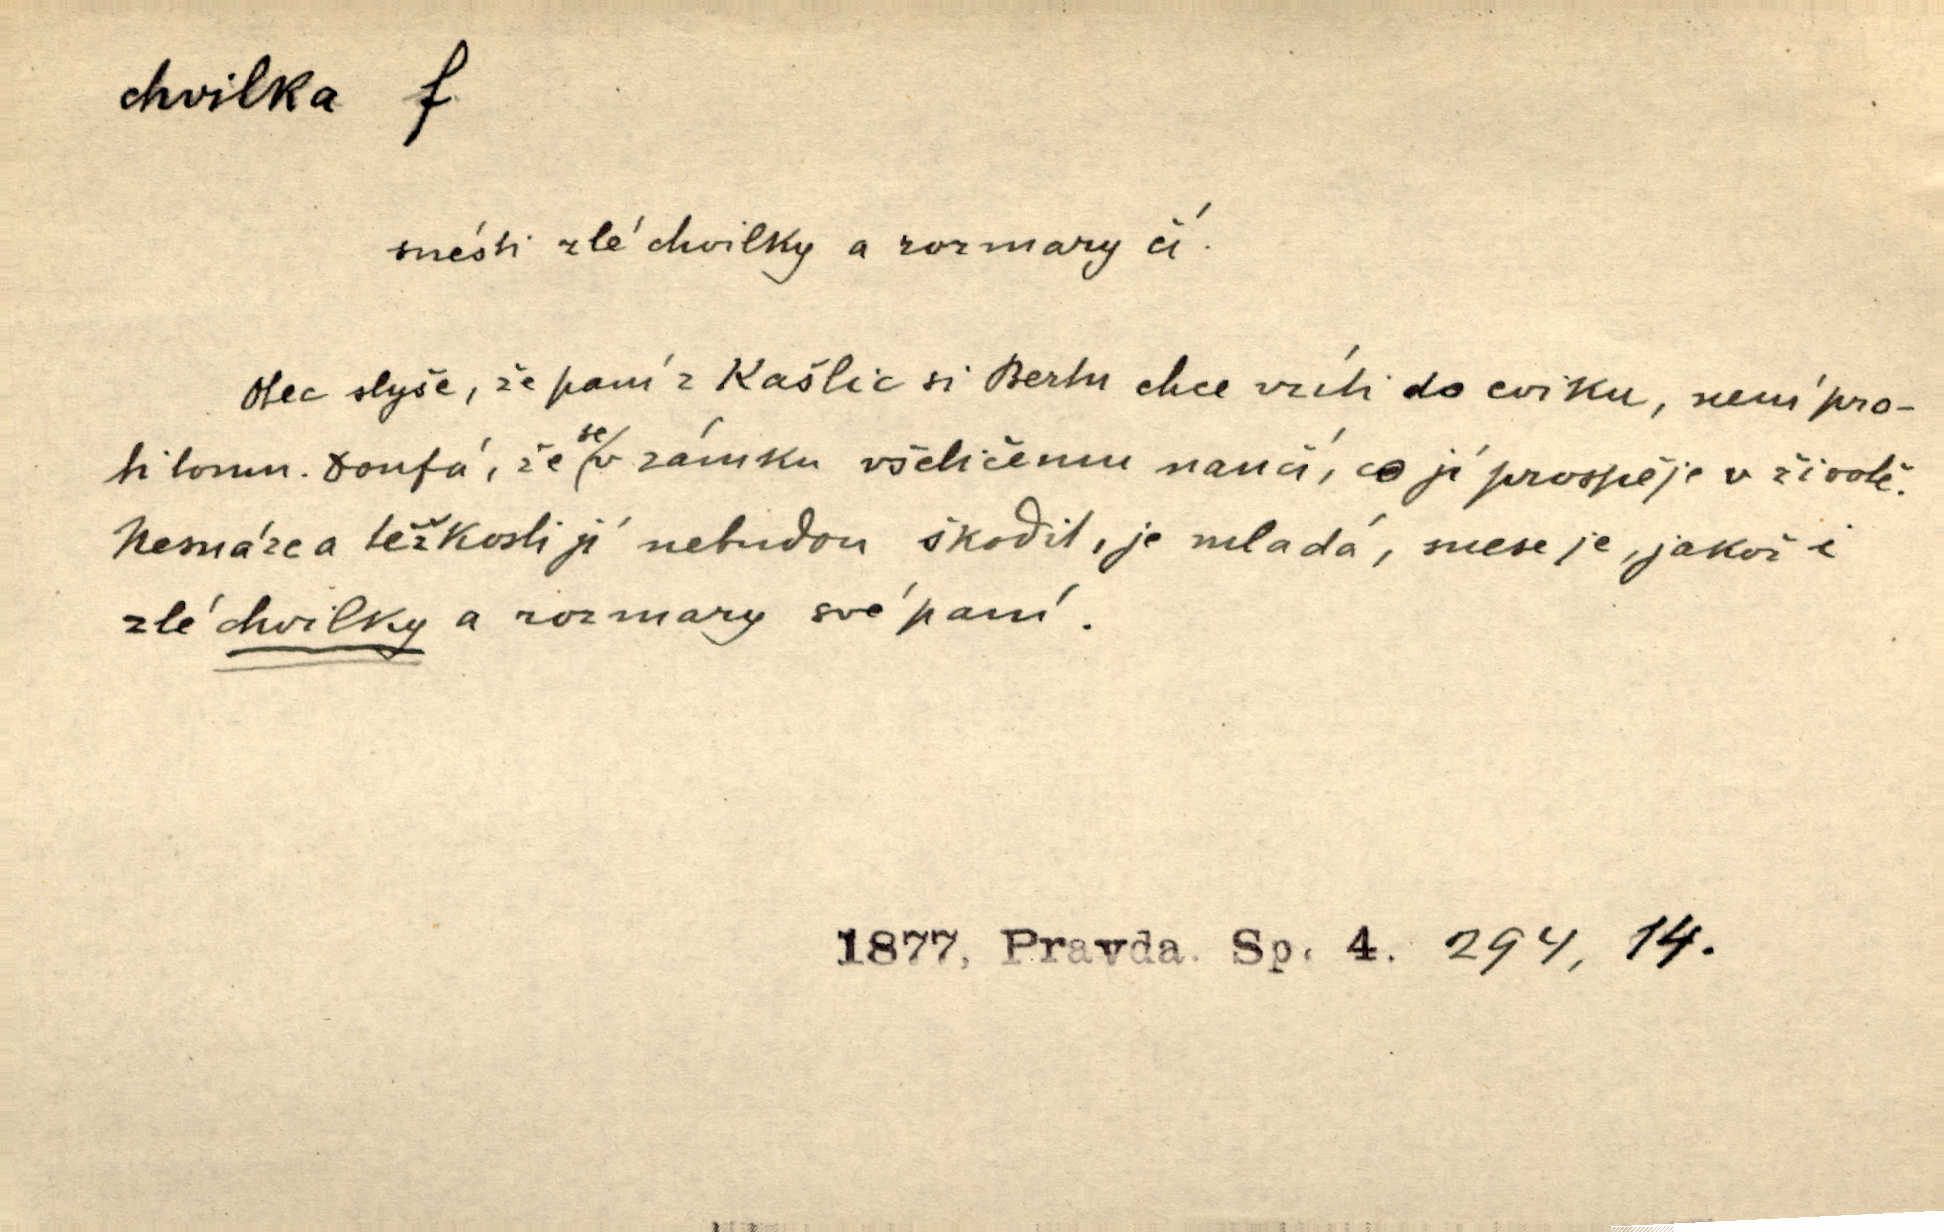 chvilka f
snésti zlé chvilky a rozmary čí.
Otec slyše, že paní z Kašlic si Bertu chce vzíti do cviku, není pro-
ti tomu. Doufá, že se v zámku všeličemu naučí, co jí prospěje v životě.
Nesnáze a těžkosti jí nebudou škodit, je mladá, snese je, jakož i
zlé chvilky a rozmary své paní.
1877, Pravda. Sp. 4. 294, 14.